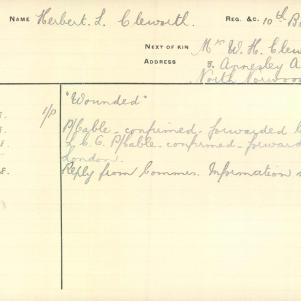 NAME Herbert L. Cleworth. REG. &C. 10th B
NEXT OF KIN Mrs W. H. Clew
ADDRESS 3. Annesley A
North Norwood
"Wounded"
1/P P/Cable - confirmed - forwarded
L. C. C. P/Cable - confirmed - forward
London.
E. Reply from Commrs. Information